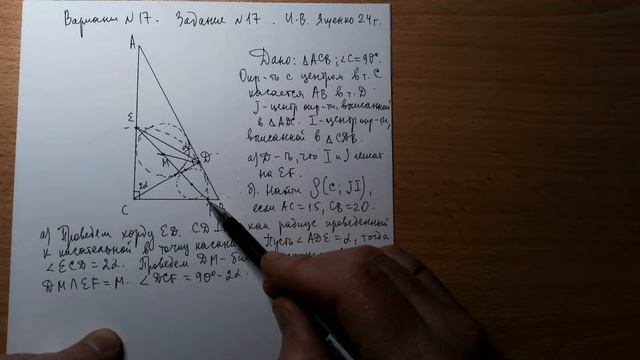 Вариант N17. Задание N17. И.В. Ященко 24г.
Дано: △ACB; ∠C=90°.
Окр-ть с центром в т. C
касается AB в т. D.
J-центр окр-ти, вписанной
в △ADC. I-центр окр-ти,
вписанной в △CDB.
а) Д-ть, что I и J лежат
на EF.
б). Найти ρ(C; JI),
если AC=15, CB=20.
A
E
M
D
2α
C
а) Проведем хорду ED. CD как радиус проведенный
к касательной в точку Пусть ∠ADE=α, тогда
∠ECD=2α. Проведем DM-
DM∩EF=M. ∠DCF=90°-2α.